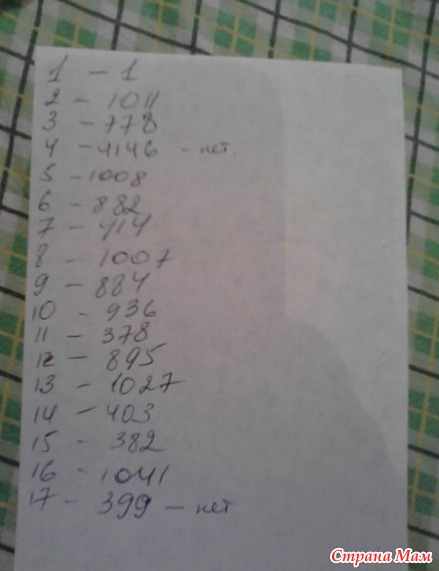 1 - 1
2 - 1011
3 - 778
4 - 4146 - нет.
5 - 1008
6 - 882
7 - 414
8 - 1007
9 - 884
10 - 936
11 - 378
12 - 895
13 - 1027
14 - 403
15 - 382
16 - 1041
17 - 399 - нет
Страна Мам